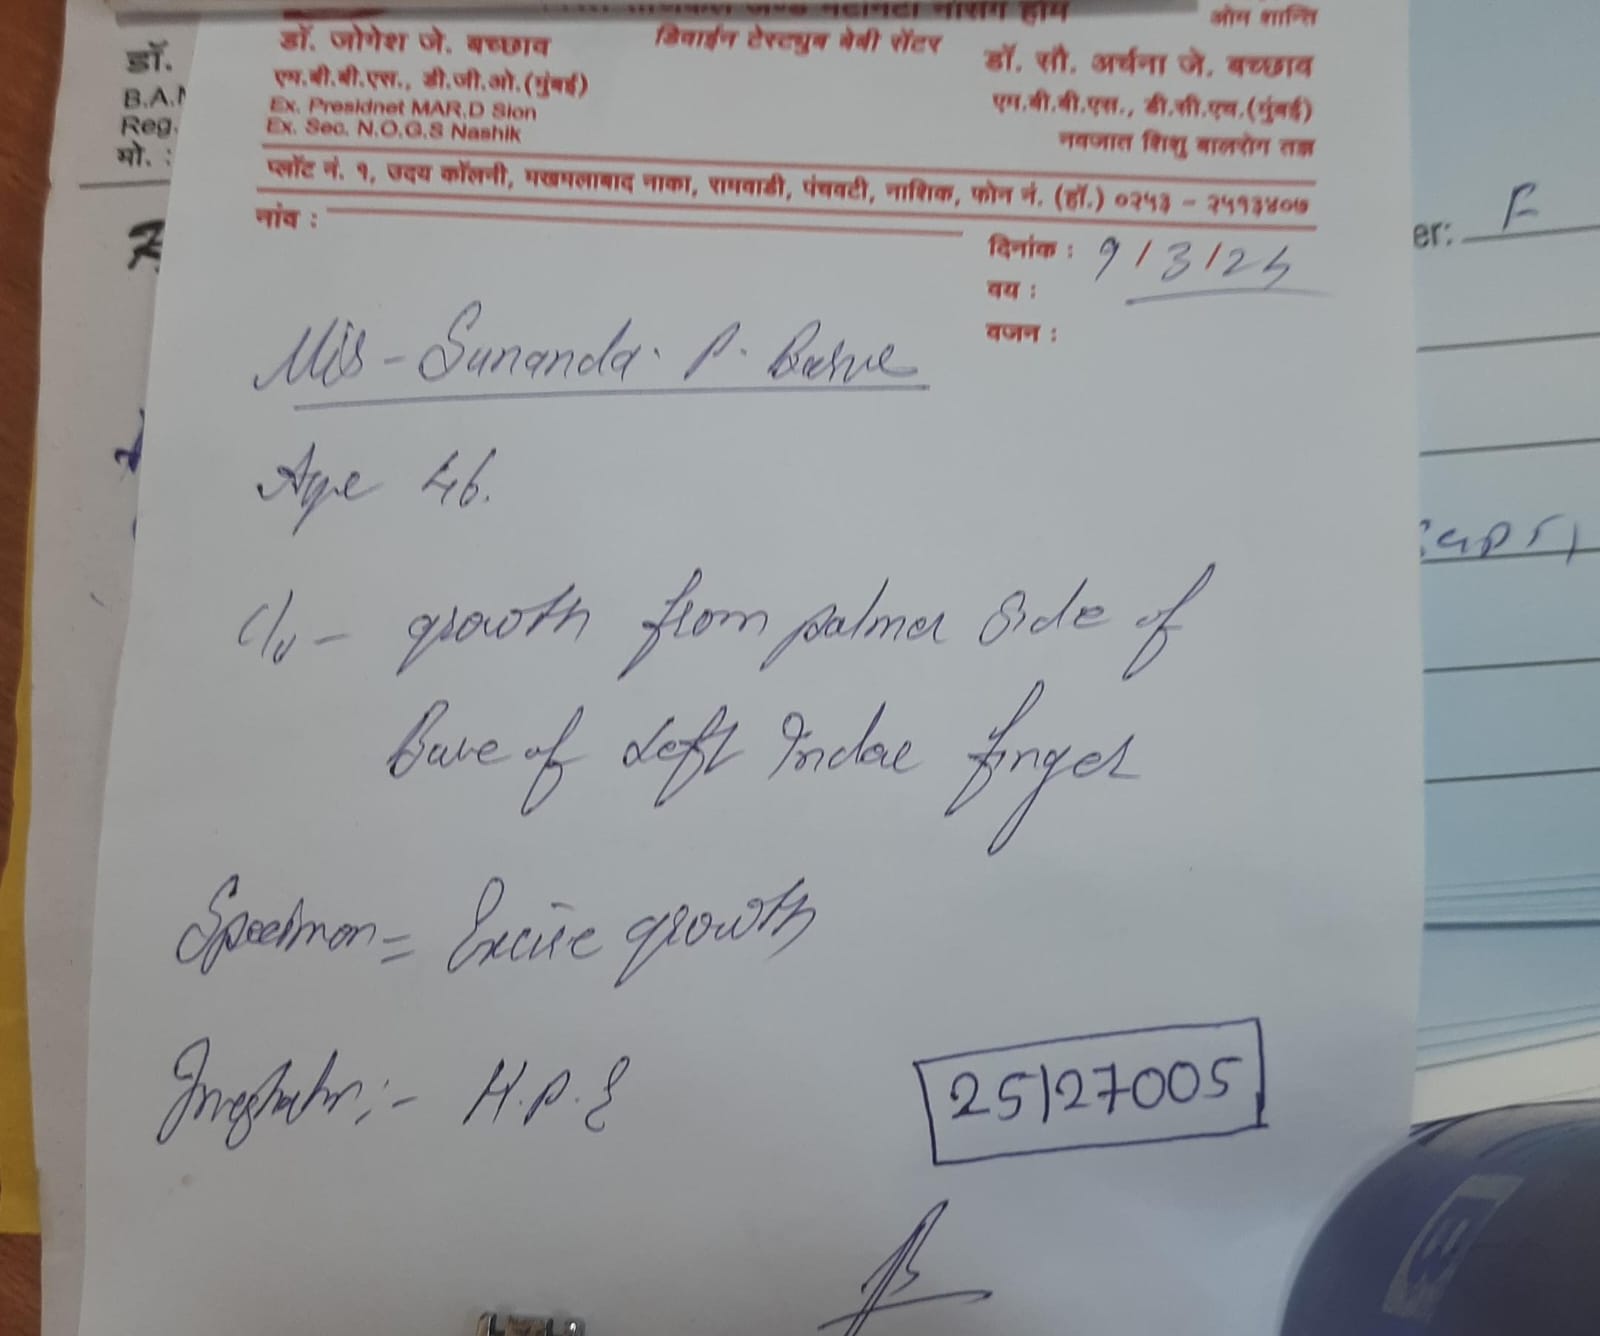 ओम शान्ति
डॉ. जोगेश जे. बच्छाव
डिवाईन टेस्ट्युब बेबी सेंटर
डॉ. सौ. अर्चना जे. बच्छाव
एम.बी.बी.एस., डी.जी.ओ.(मुंबई)
एम.बी.बी.एस., डी.सी.एच.(मुंबई)
Ex. Presidnet MAR.D Sion
Ex. Sec. N.O.G.S Nashik
नवजात शिशु बालरोग तज्ञ
प्लॉट नं. १, उदय कॉलनी, मखमलाबाद नाका, रामवाडी, पंचवटी, नाशिक, फोन नं. (हॉ.) ०२५३ - २५१३४०७
नांव :
दिनांक : 9/3/25
वय :
वजन :
Mis - Sunanda. P.
Age 46.
growth from palmer side of
Base of Left Index finger
Specimen = Excise growth
:- H.P.E
25/27005
डॉ.
Reg.
मो. :
er: F